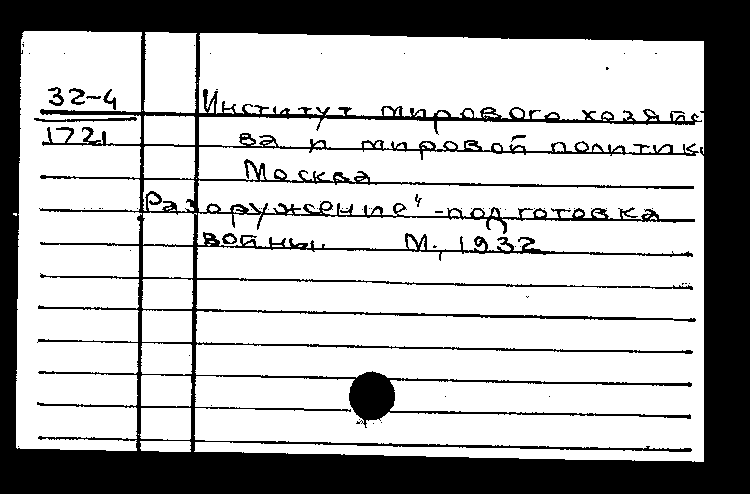 32-4
1721
Институт мирового хозяйс
ва и мировой политик
Москва
Разоружение" - подготовка
войны. М., 1932